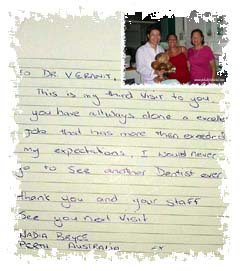 To DR VERANIT,
This is my third visit to you,
you have allways done a excellent
Job that has more then exceeded
my expectations. I would never
go to see another Dentist ever.
Thank you and your staff
See you next visit
NADIA BRYCE
PERTH AUSTRALIA